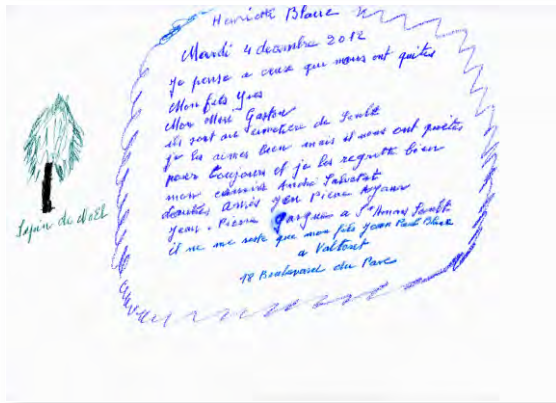 Henriette Blaise
Mardi 4 decembre 2012
Je pense a ceux que nous ont quites
Mon fils Yves
Mon Mari Gaston
ils sont au cimetière de
je les aimes bien mais il nous ont quites
pour toujours et je les regrette bien
mon André
dautres amis Jean Pierre
Jean-Pierre a Ste Anne
il ne me reste que mon fils Jean Paul Blaise
a Valtoret
18 Boulevard du Parc
Sapin de Noël